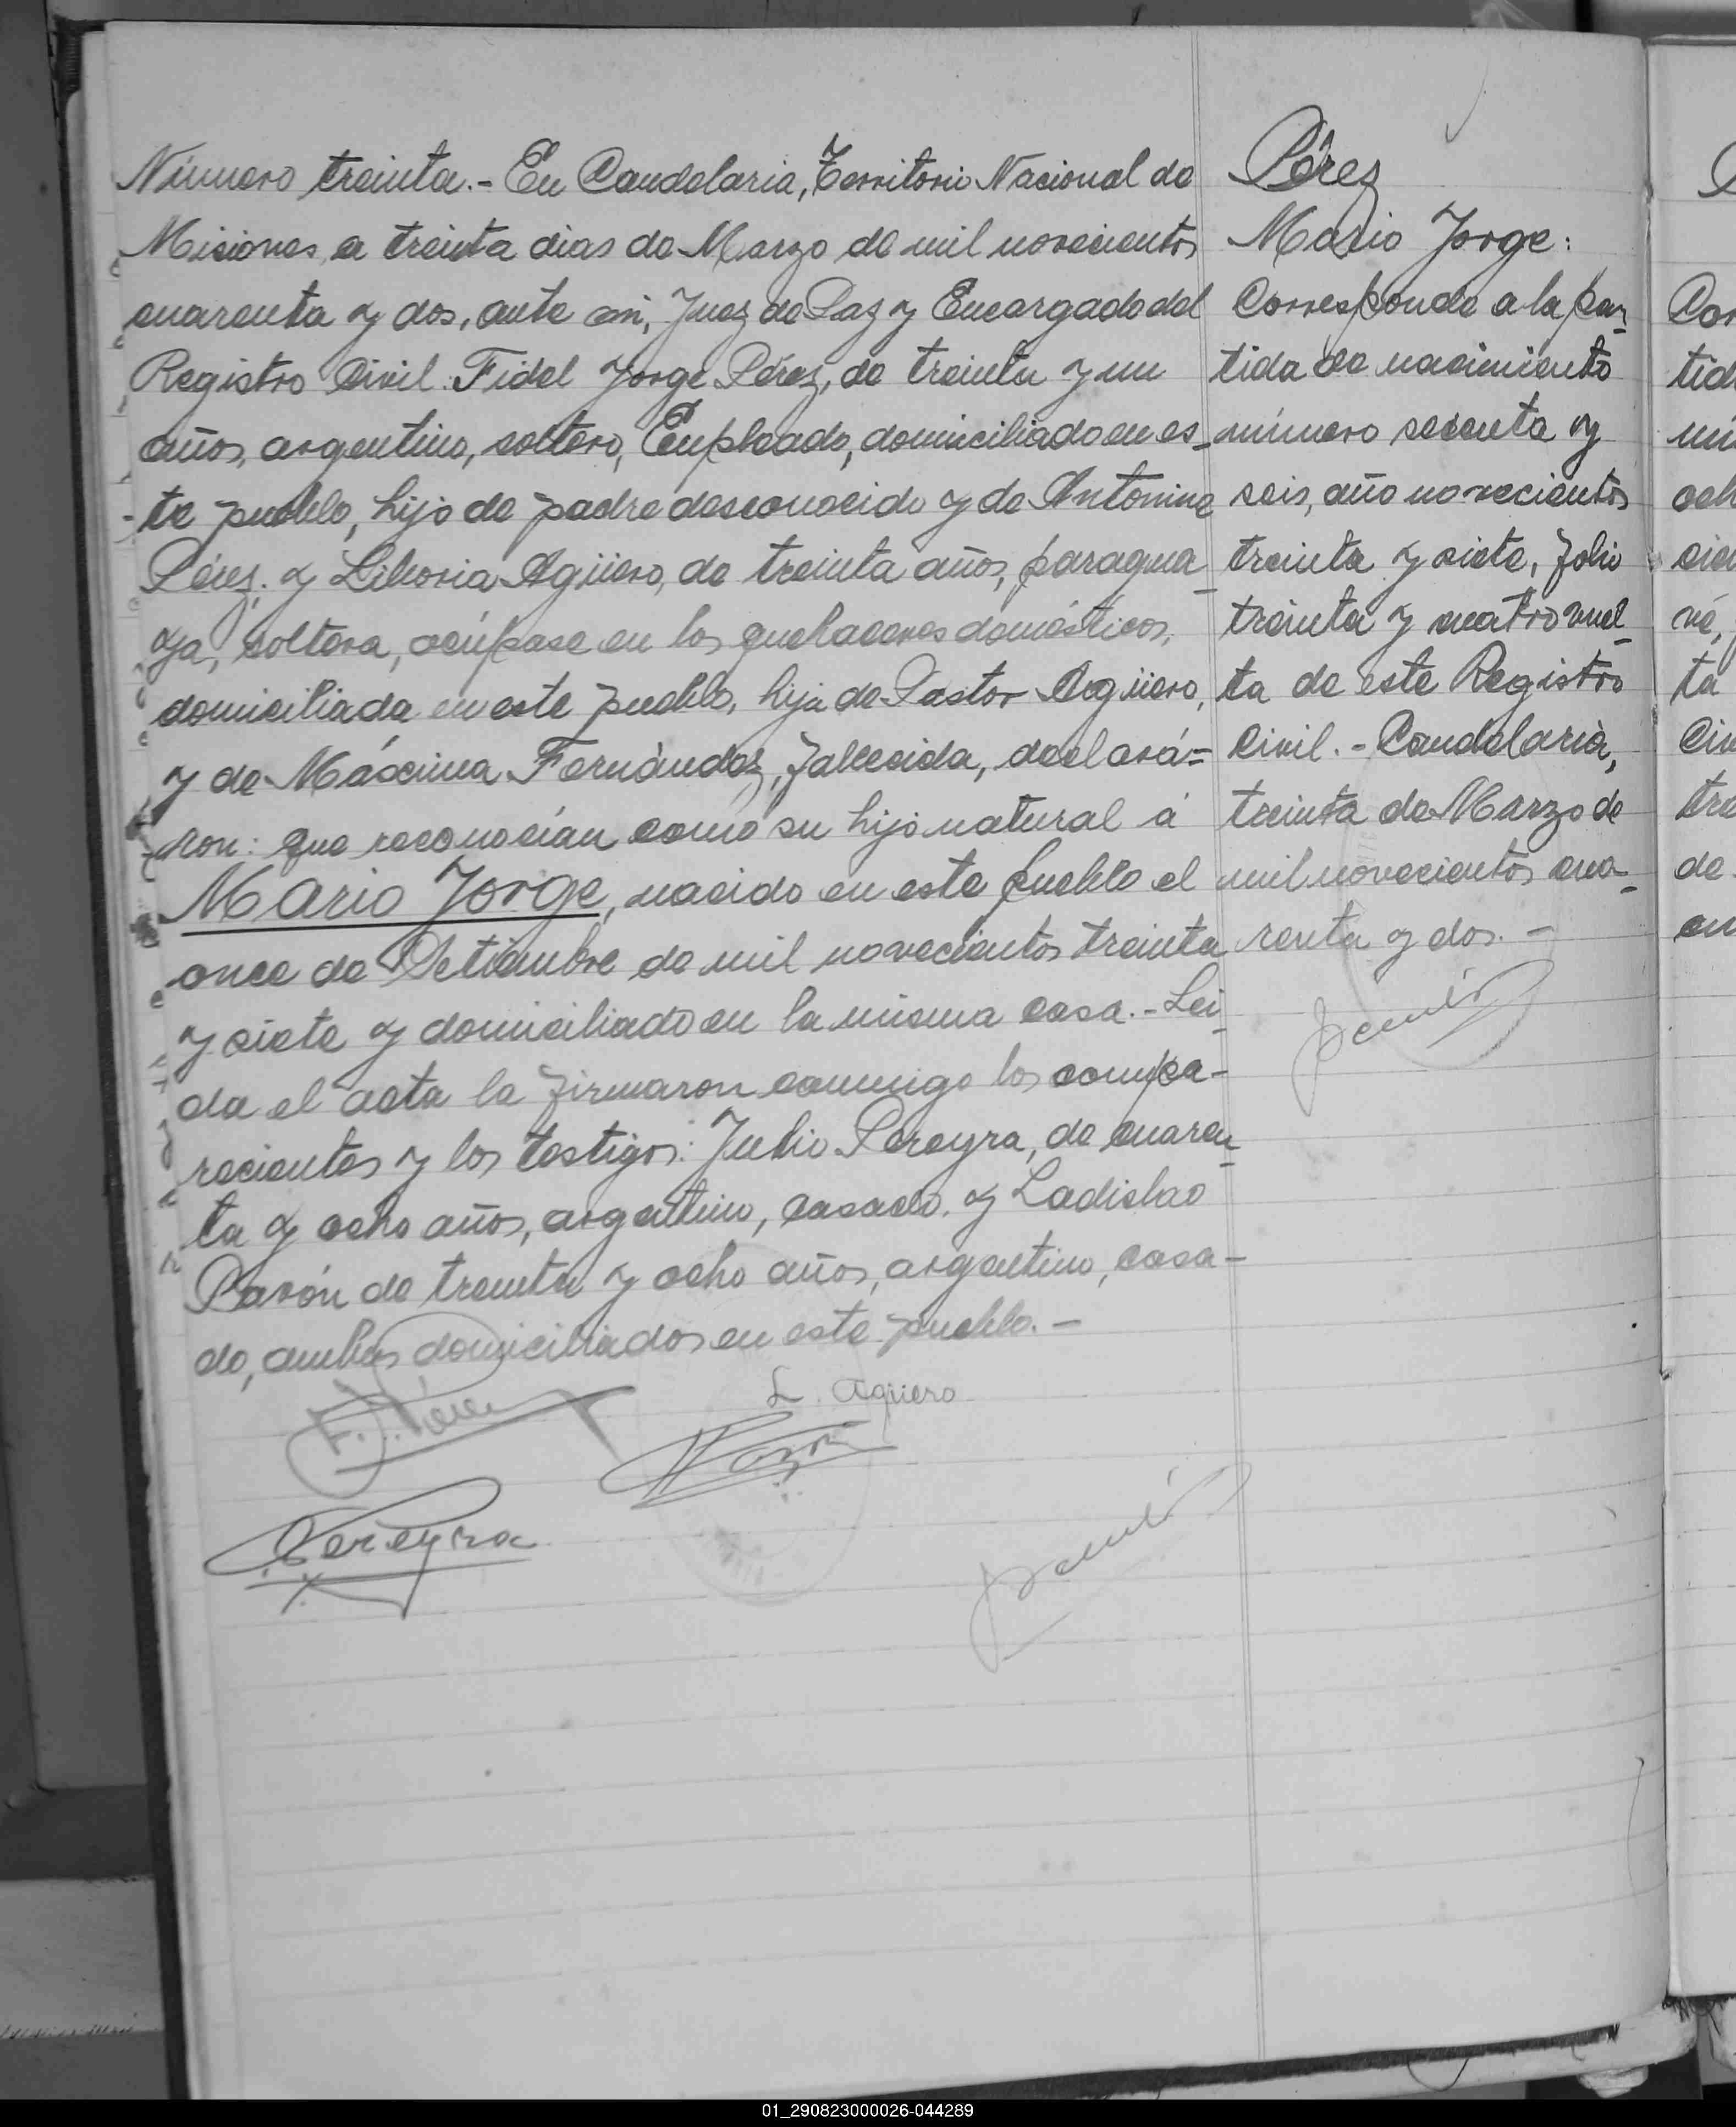 Número treinta.- En Candelaria, Territorio Nacional de
Misiones, a treinta dias de Marzo de mil novecientos
cuarenta y dos, ante mi, Juez de Paz y Encargado del
Registro Civil: Fidel Jorge Pérez, de treinta y un
años, argentino, soltero, Empleado, domiciliado en es-
-te pueblo, hijo de padre desconocido y de Antonina
Pérez; y Liboria Agüero, de treinta años, paragua-
ya, soltera, ocúpase en los quehaceres domésticos,
domiciliada en este pueblo, hija de Pastor Agüero,
y de Máxima Fernández, fallecida, declará=
ron: que reconocían como su hijo natural á
Mario Jorge, nacido en este pueblo el
once de Setiembre de mil novecientos treinta
y siete y domiciliado en la misma casa.- Lei-
da el acta la firmaron conmigo los compa-
recientes y los testigos: Julio Pereyra, de cuaren-
ta y ocho años, argentino, casado, y Ladislao
Pavón de treinta y ocho años, argentino, casa-
do, ambos domiciliados en este pueblo.-
F. J. Pérez
L. Agüero
Pavón
Pereyra
Pérez
Mario Jorge:
Corresponde a la par-
tida de nacimiento
número sesenta y
seis, año novecientos
treinta y siete, folio
treinta y cuatro vuel-
ta de este Registro
Civil.- Candelaria,
treinta de Marzo de
mil novecientos cua-
renta y dos.-
01_290823000026-044289